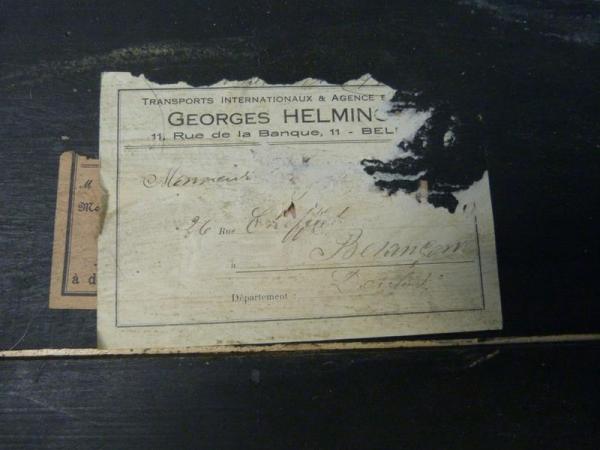 TRANSPORTS INTERNATIONAUX & AGENCE
GEORGES HELMING
11, Rue de la Banque, 11 - BEL
Monsieur
26 Rue
à Besançon
Département : Doubs
M
Me
à d